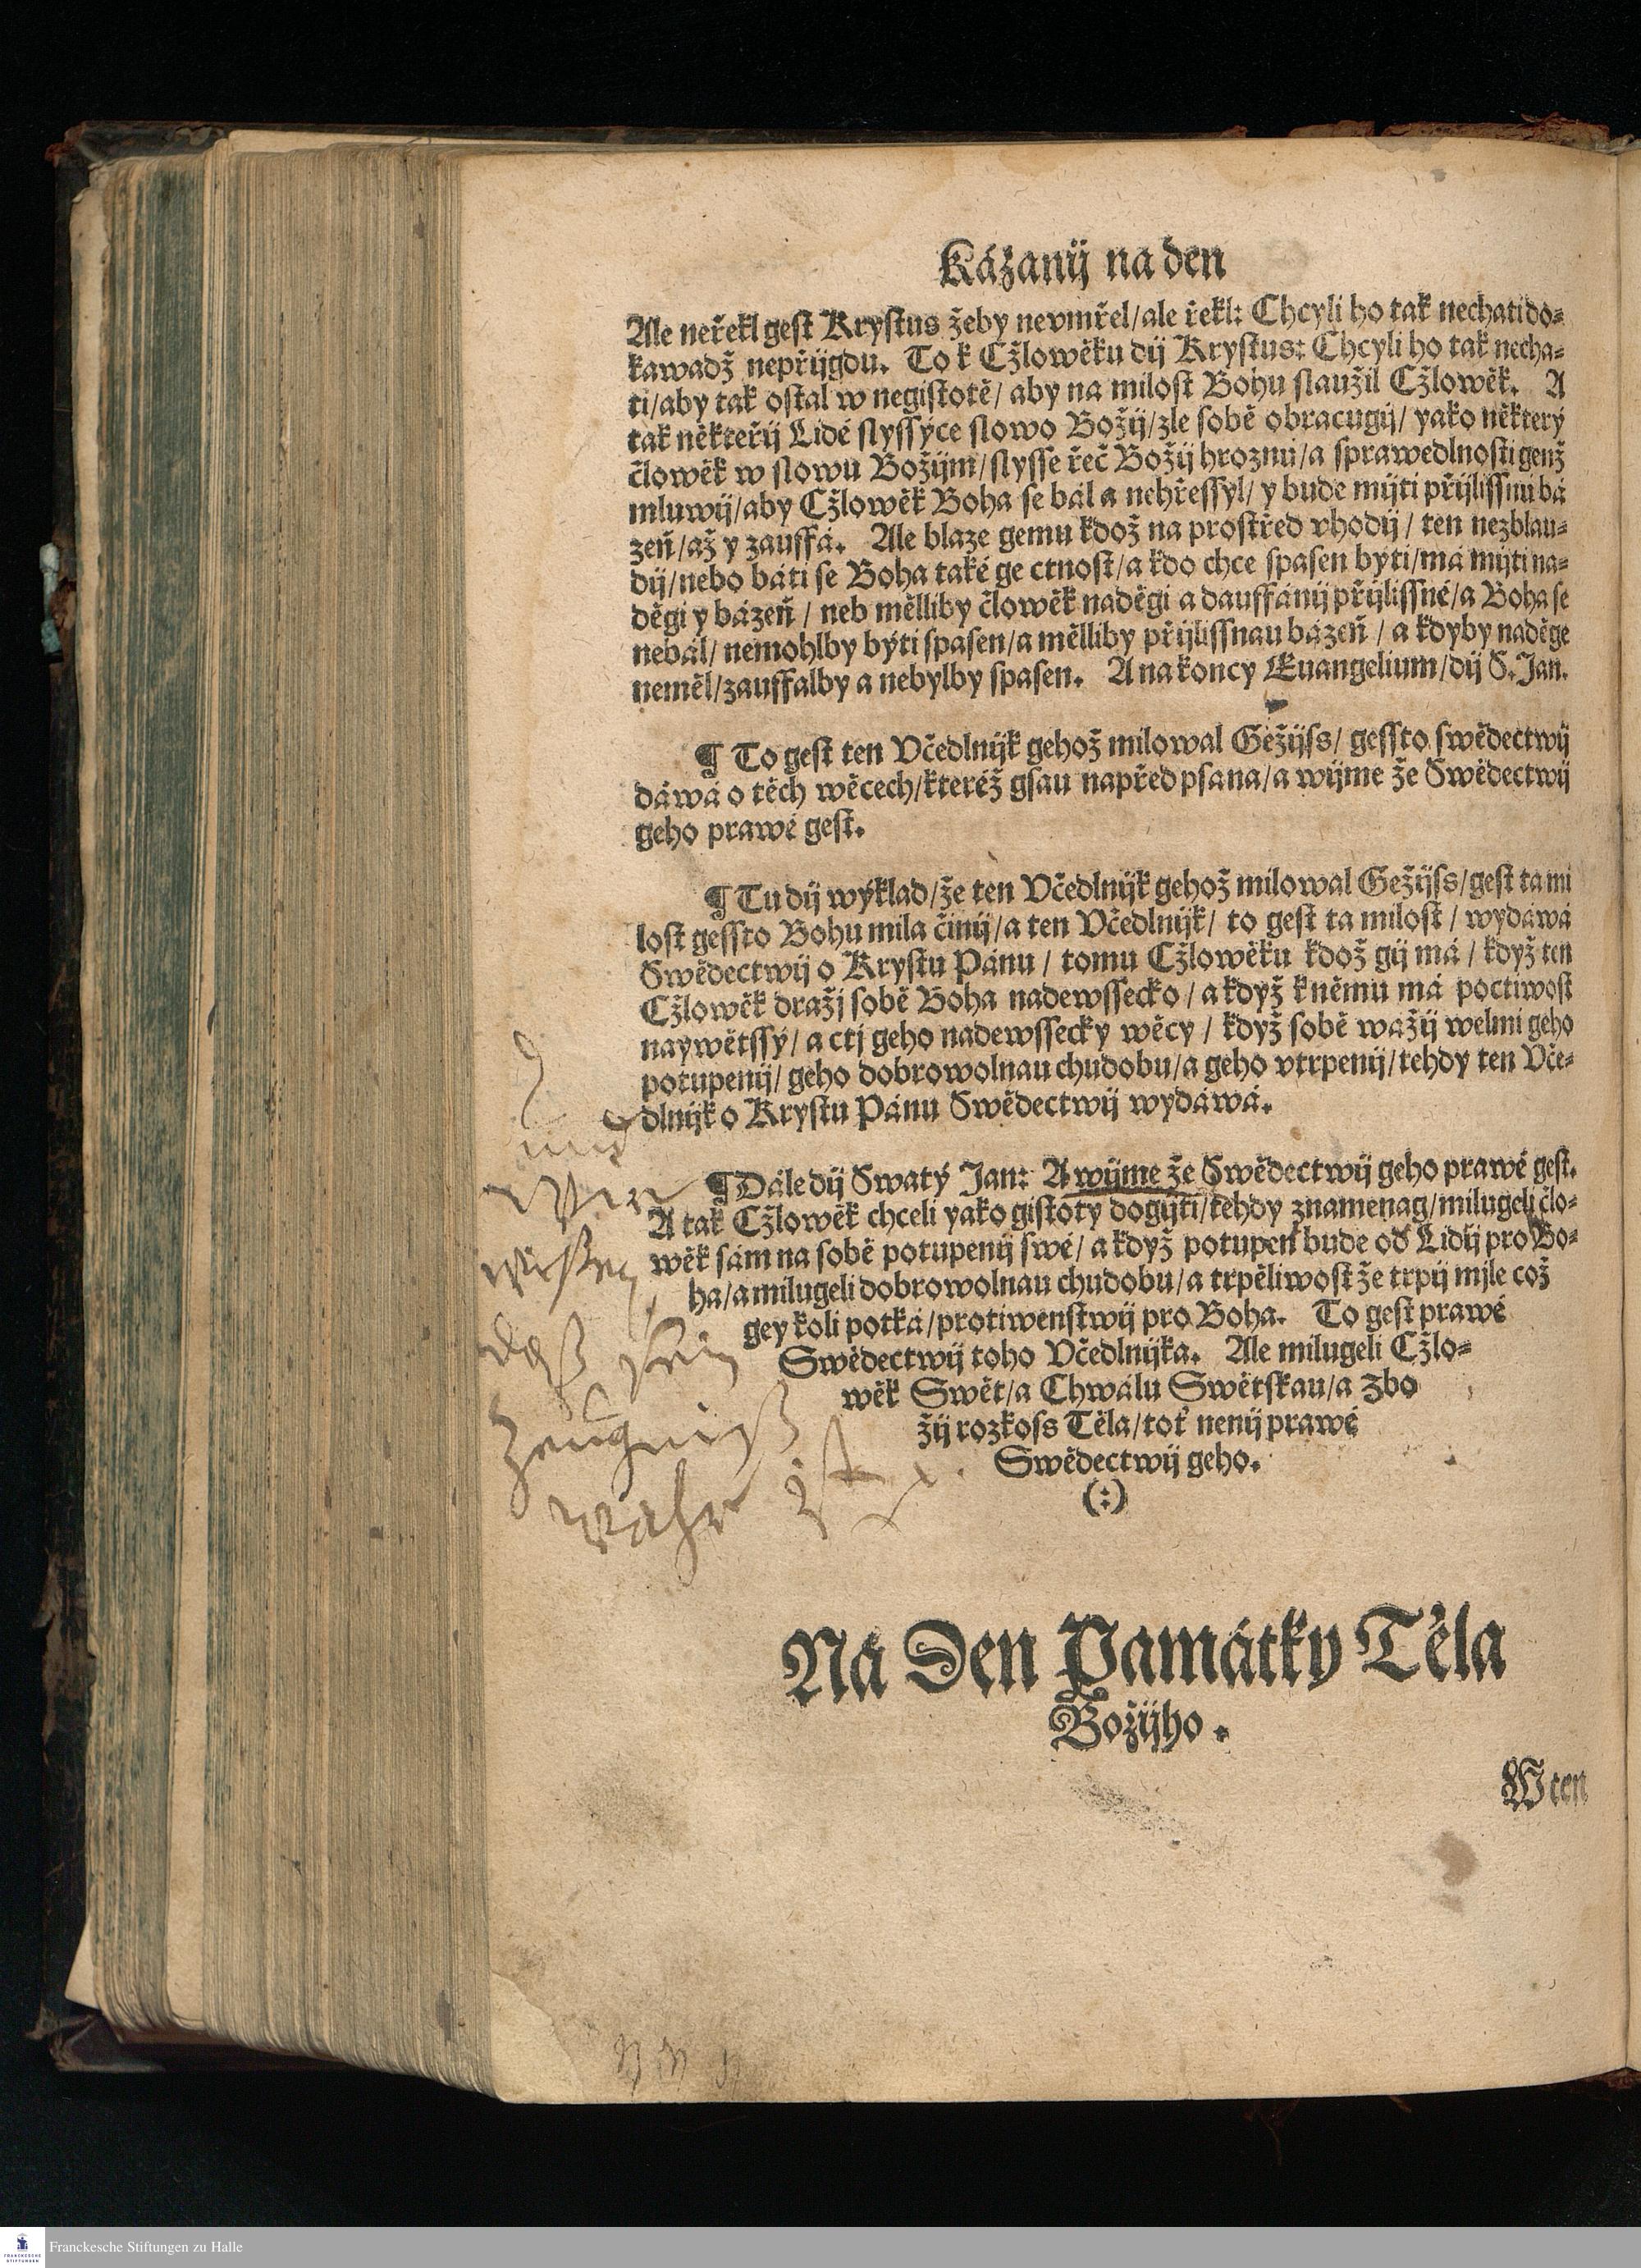 Kázanij na den
Ale neřekl gest Krystus žeby nevmřel/ale řekl: Chcyli ho tak nechati do⸗
kawadž nepřijgdu. To k Cžlowěku dij Krystus: Chcyli ho tak necha⸗
ti/aby tak ostal w negistotě/ aby na milost Bohu slaužil Cžlowěk. A
tak někteřij Lidé slyssýce slowo Božij/zle sobě obracugij/ yako některý
člowěk w slowu Božijm/slysse řeč Božij hroznú/a sprawedlnosti genž
mluwij/aby Cžlowěk Boha se bál a nehřessyl/ y bude mijti přijlissnú bá
zeň/až y zauffá. Ale blaze gemu kdož na prostřed vhodij/ ten nezblau⸗
dij/nebo báti se Boha také ge ctnost/a kdo chce spasen býti/má mijti na⸗
děgi y bázeň / neb mělliby člowěk naděgi a dauffánij přijlissné/a Boha se
nebál/ nemohlby býti spasen/a mělliby přijlissnau bázeň / a kdyby naděge
neměl/zauffalby a nebylby spasen. A na koncy Euangelium/dij S. Jan.
¶ To gest ten Včedlnijk gehož milowal Gežijss/ gessto swědectwij
dáwá o těch wěcech/kteréž gsau napřed psana/a wijme že Swědectwij
geho prawé gest.
¶ Tu dij wýklad/že ten Včedlnijk gehož milowal Gežijss/gest ta mi
lost gessto Bohu mila činij/a ten Včedlnijk/ to gest ta milost / wydáwá
Swědectwij o Krystu Pánu / tomu Cžlowěku kdož gij má / když ten
Cžlowěk dražj sobě Boha nadewssecko / a když k němu má poctiwost
naywětssý/ a ctj geho nadewssecky wěcy / když sobě wážij welmi geho
potupenij/ geho dobrowolnau chudobu/a geho vtrpenij/tehdy ten Vče⸗
dlnijk o Krystu Pánu Swědectwij wydáwá.
¶ Dále dij Swatý Jan: A wijme že Swědectwij geho prawé gest.
A tak Cžlowěk chceli yako gistoty dogijti/tehdy znamenag/milugeli člo⸗
wěk sám na sobě potupenij swé/ a když potupen bude od Lidij pro Bo⸗
ha/a milugeli dobrowolnau chudobu/a trpěliwost že trpij mjle což
gey koli potká/protiwenstwij pro Boha. To gest prawé
Swědectwij toho Včedlnijka. Ale milugeli Cžlo⸗
wěk Swět/a Chwálu Swětskau/a zbo
žij rozkoss Těla/toť nenij prawé
Swědectwij geho.
(:)
und
Wir
wißen,
daß sein
Zeugniß
wahr ist
Na Den Památky Těla
Božijho.
W ten
Franckesche Stiftungen zu Halle